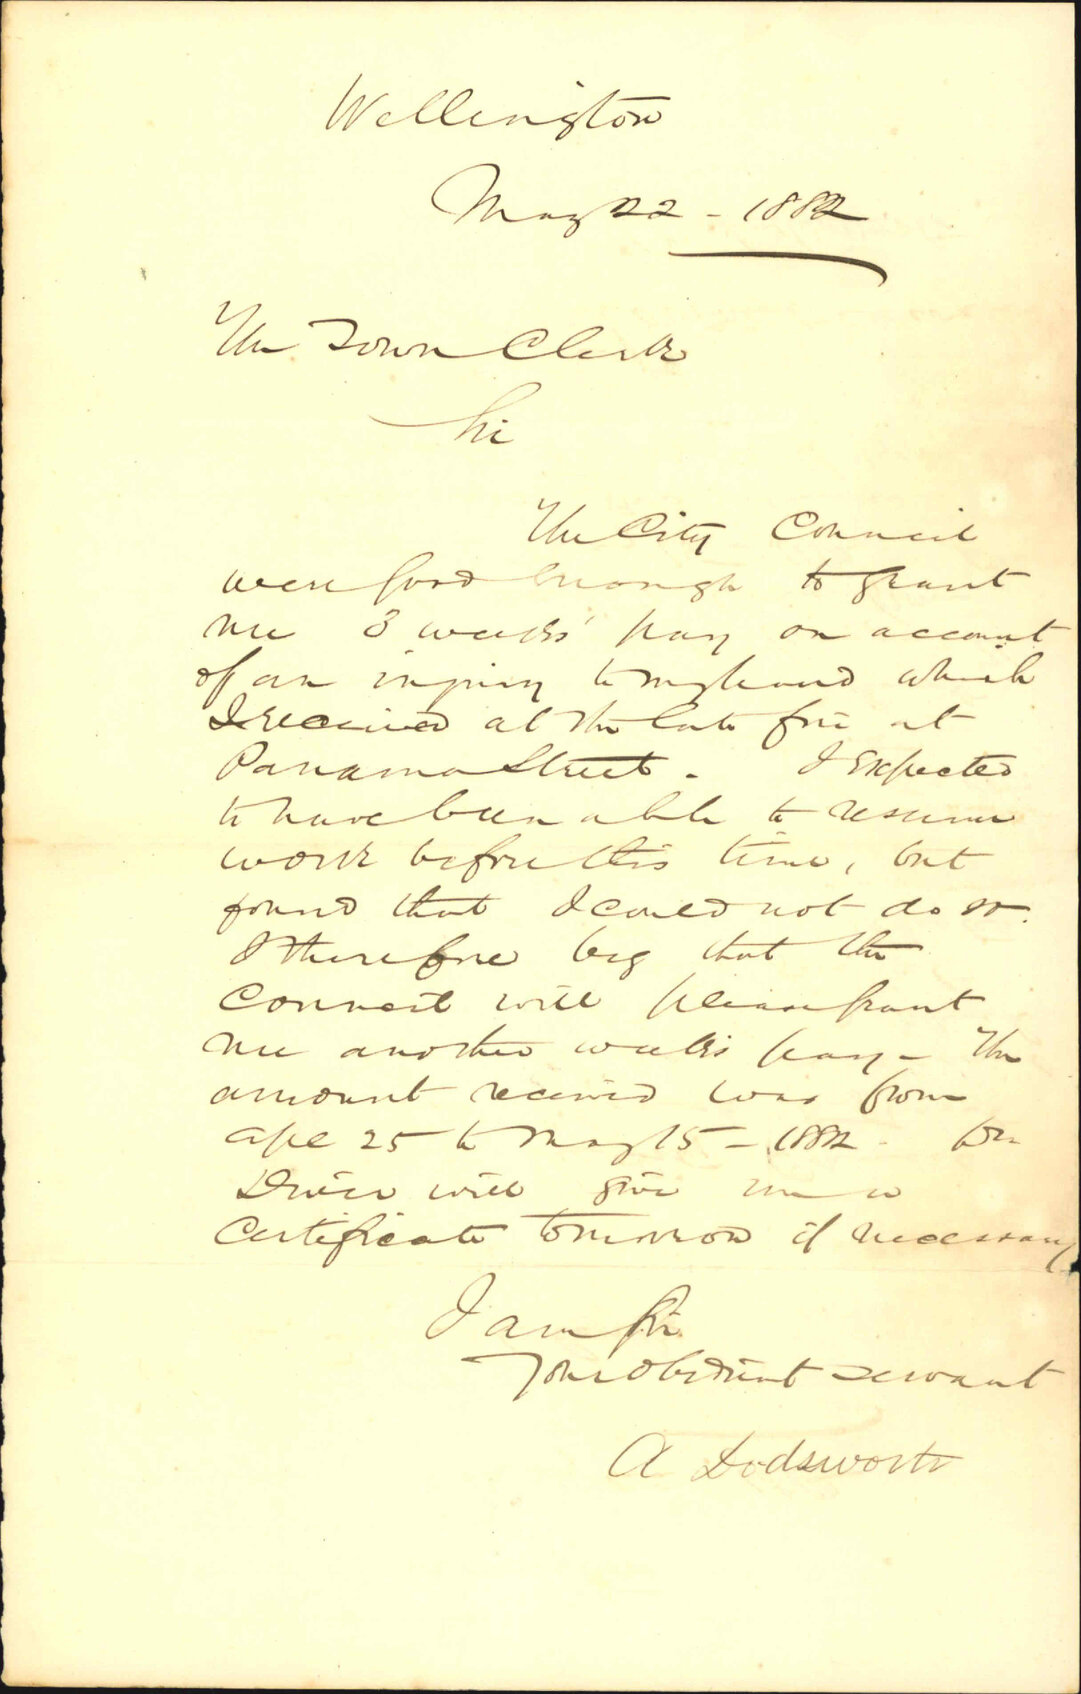 Wellington
May 22 - 1882
The Town Clerk
Sir
The City Council
were good enough to grant
me 3 weeks' pay on account
of an injury to my hand which
I received at the late fire at
Panama Street. I expected
to have been able to resume
work before this time, but
found that I could not do so.
I therefore beg that the
Council will please grant
me another week's pay - The
amount received was from
Apl 25 to May 15 - 1882.
Driver will give me a
certificate tomorrow if necessary
I am Sir
Your obedient servant
A Dodsworth